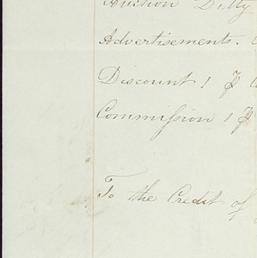 Auction Duty
Advertisements.
Discount 1 P
Commission 1 P
To the Credit of